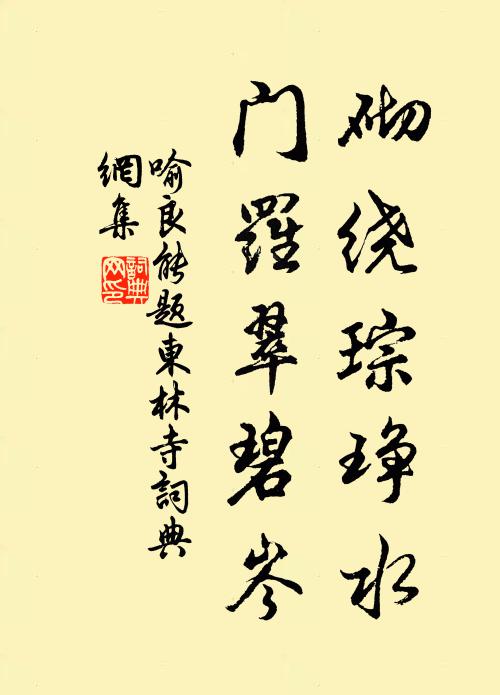 砌绕琮琤水
门羅翠碧岑
喻良能题東林寺詞典
網集
詞典網印